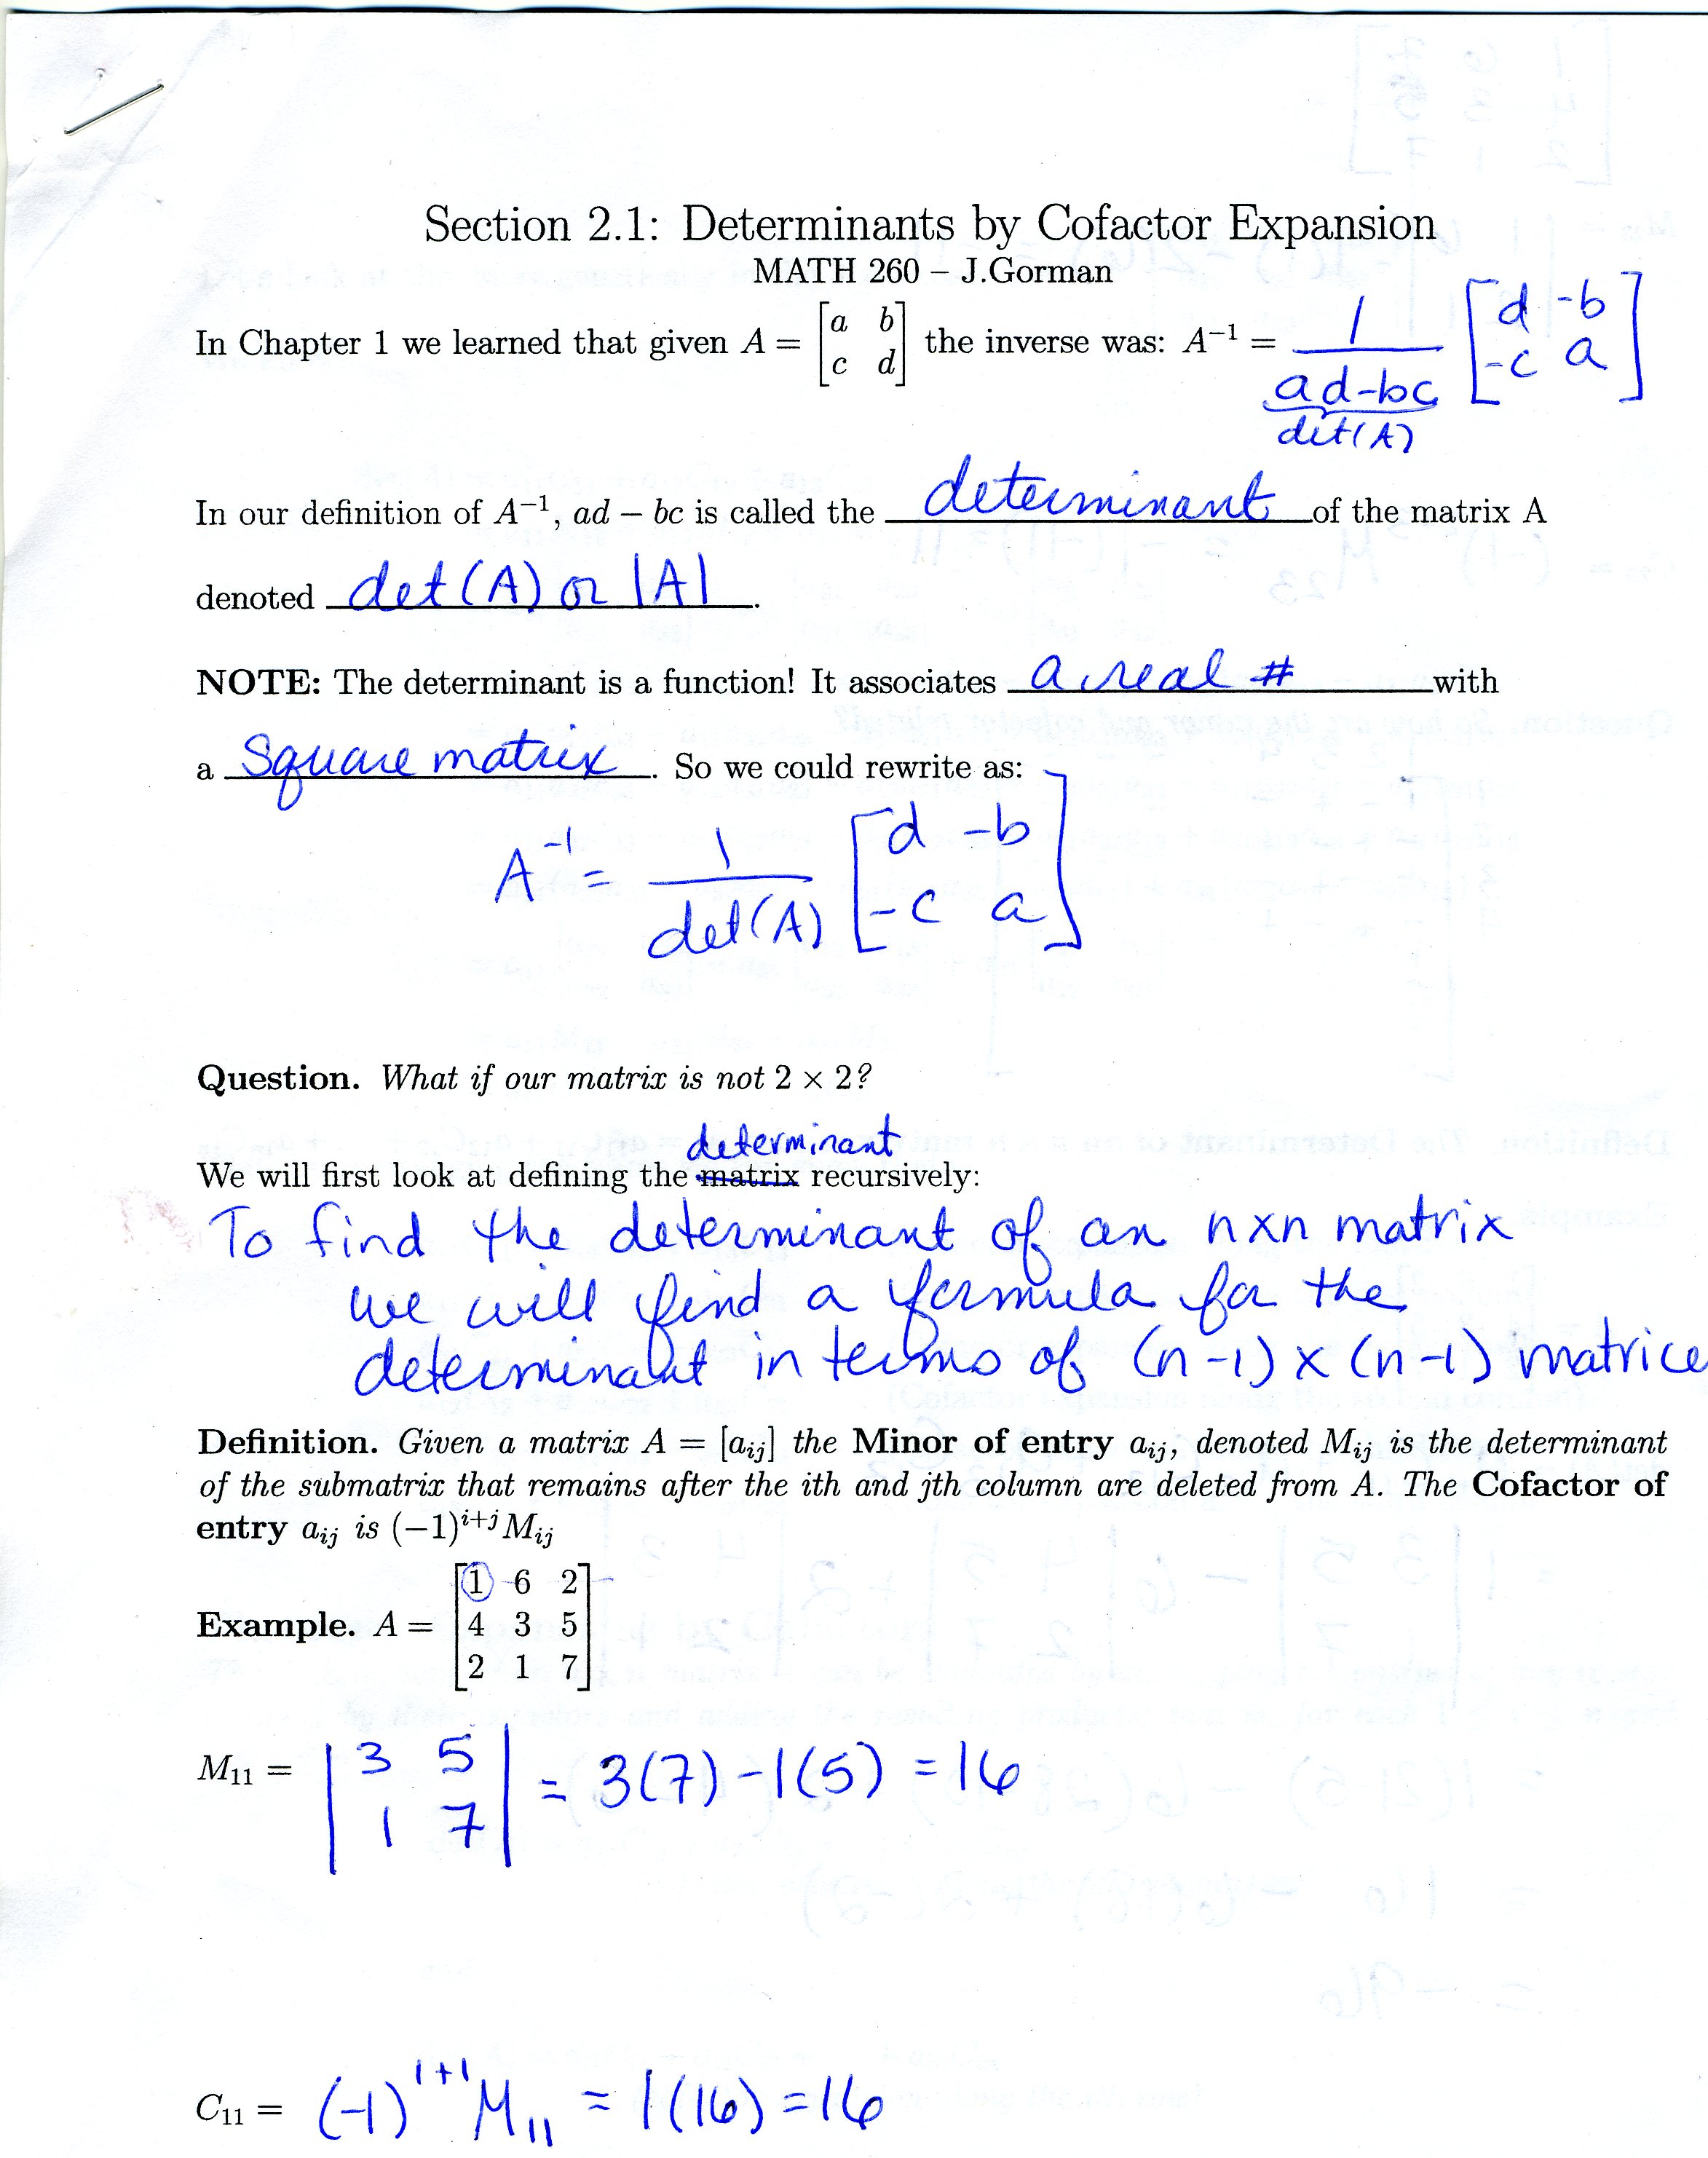 Section 2.1: Determinants by Cofactor Expansion
MATH 260 – J.Gorman
In Chapter 1 we learned that given A = [a b; c d] the inverse was: A⁻¹ = 1/(ad-bc) [d -b; -c a]
det(A)
In our definition of A⁻¹, ad − bc is called the determinant of the matrix A
denoted det(A) or |A|.
NOTE: The determinant is a function! It associates a real # with
a square matrix. So we could rewrite as:
A⁻¹ = 1/det(A) [d -b; -c a]
Question. What if our matrix is not 2 × 2?
determinant
We will first look at defining the matrix recursively:
To find the determinant of an nxn matrix
we will find a formula for the
determinant in terms of (n-1) x (n-1) matrice
Definition. Given a matrix A = [aᵢⱼ] the Minor of entry aᵢⱼ, denoted Mᵢⱼ is the determinant
of the submatrix that remains after the ith and jth column are deleted from A. The Cofactor of
entry aᵢⱼ is (−1)ⁱ⁺ʲMᵢⱼ
Example. A = [1 6 2; 4 3 5; 2 1 7]
M₁₁ = |3 5; 1 7| = 3(7) - 1(5) = 16
C₁₁ = (-1)¹⁺¹ M₁₁ = 1(16) = 16